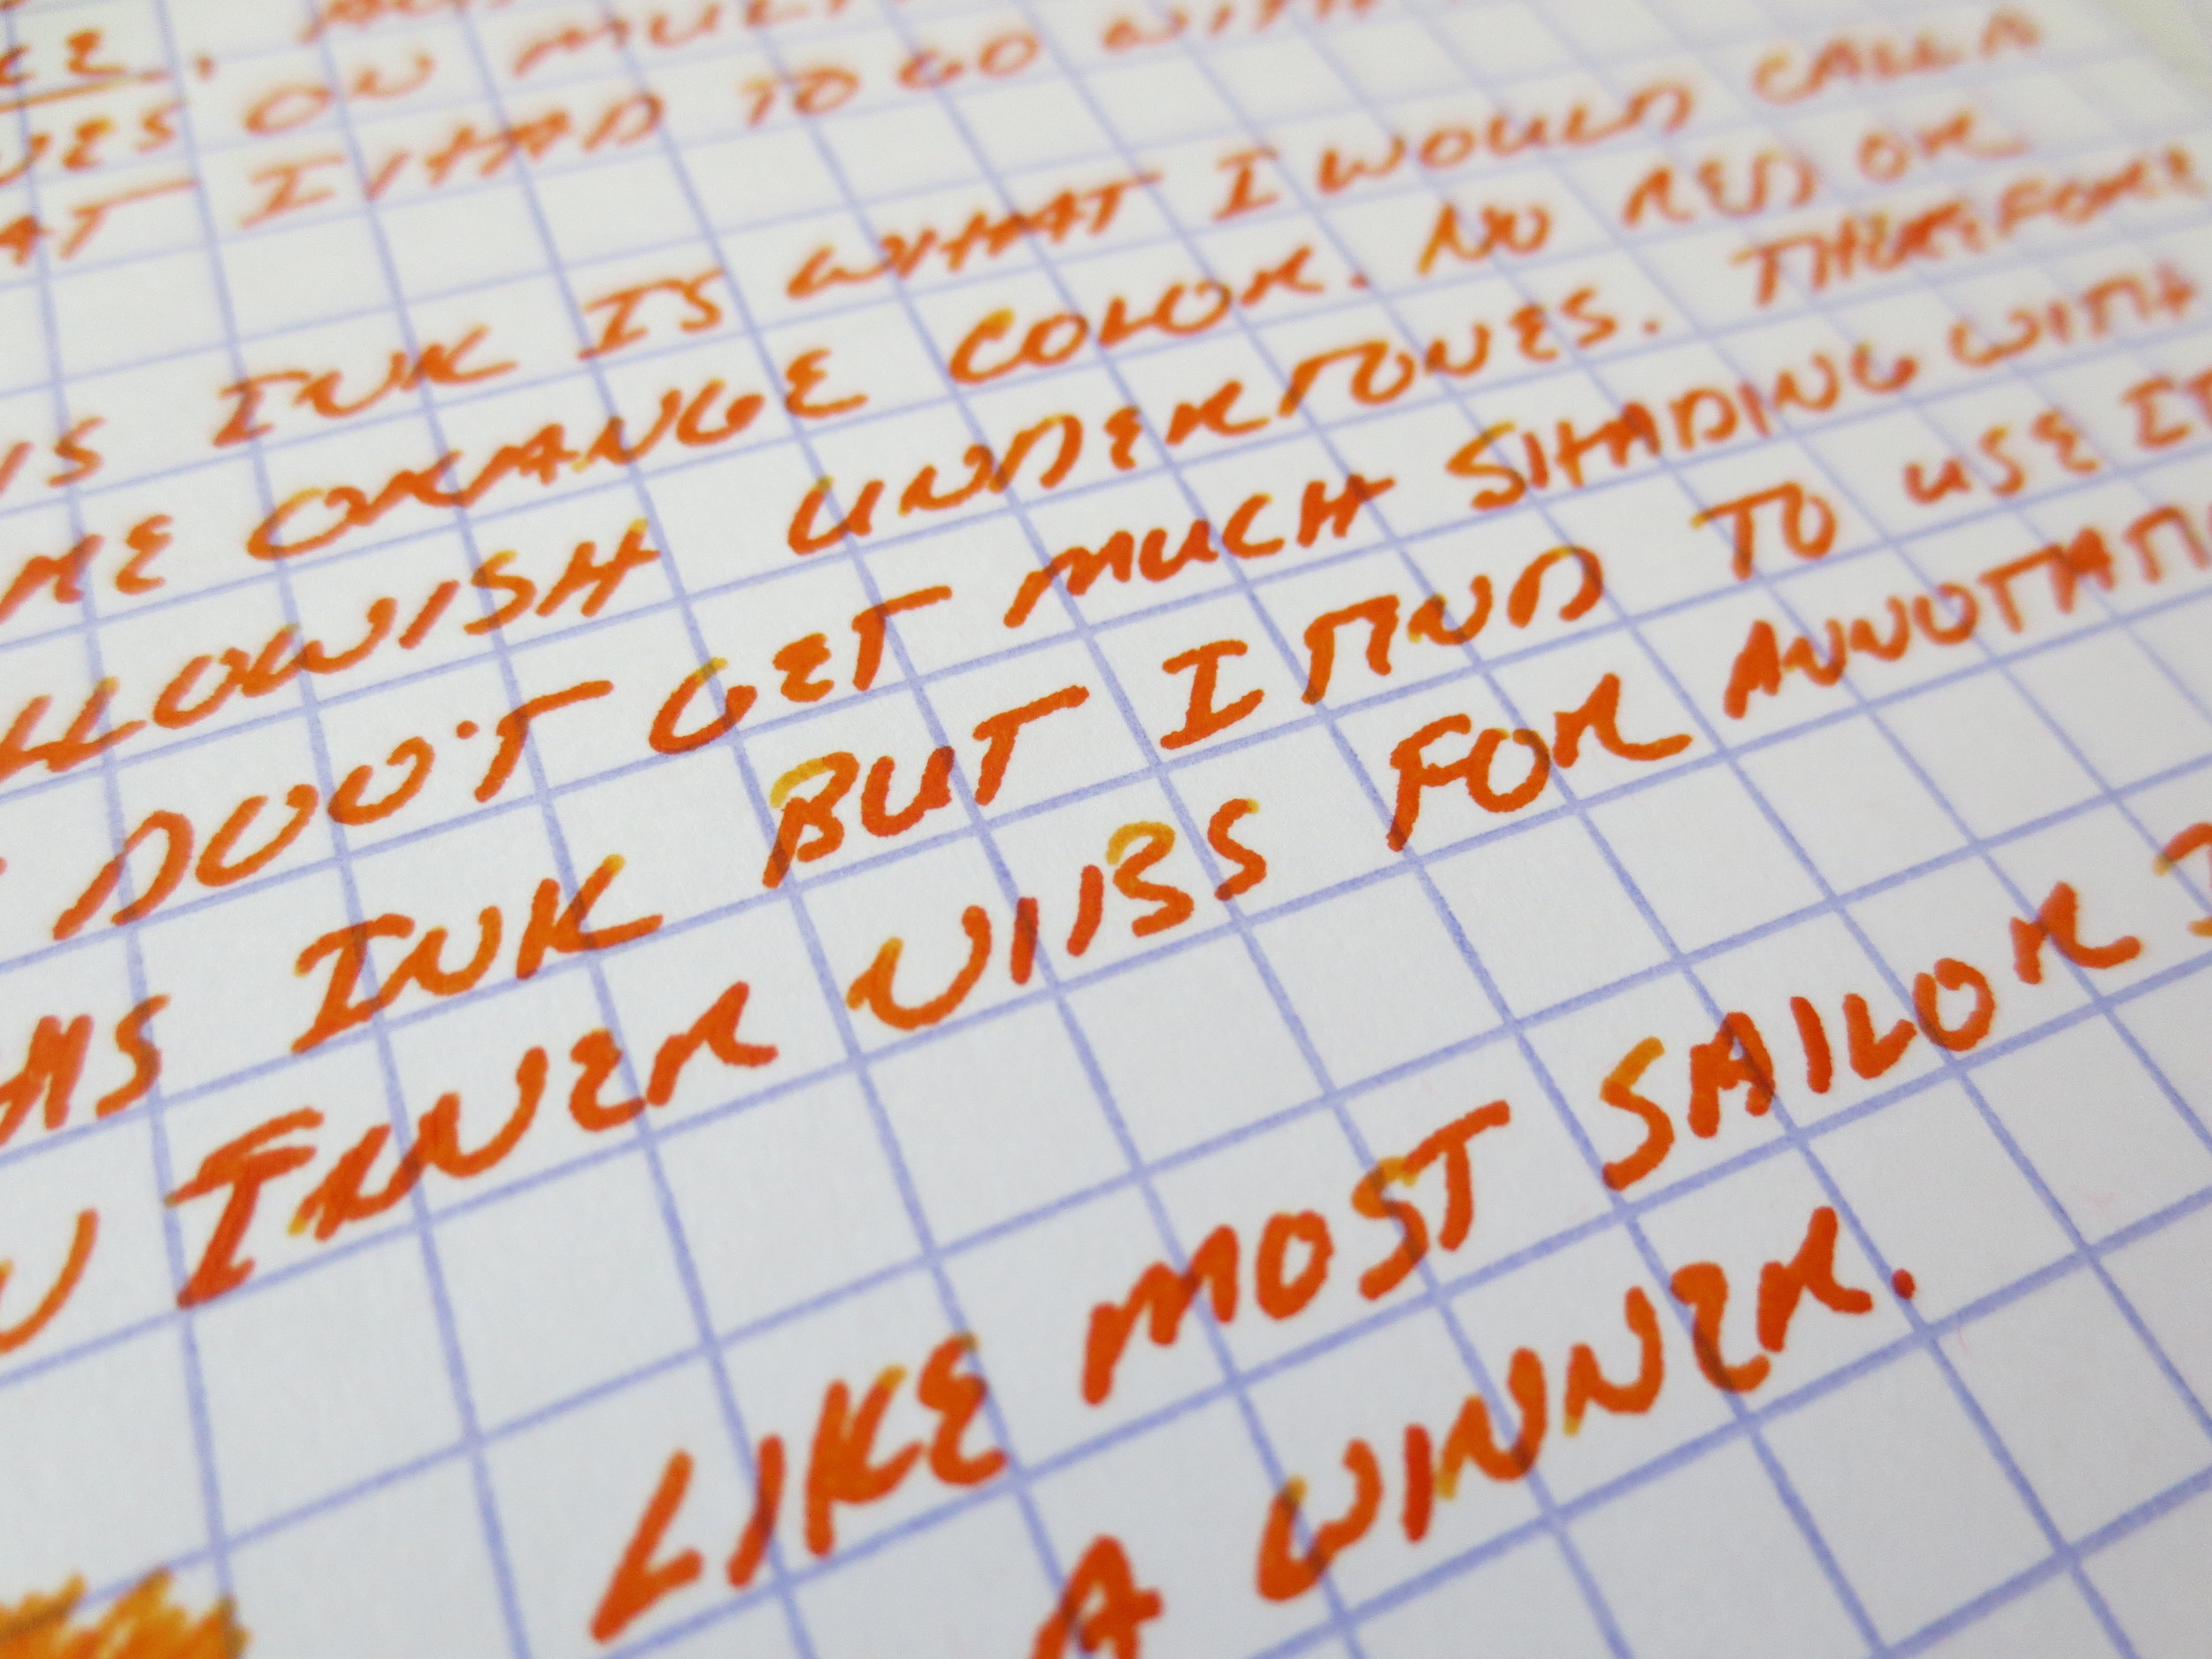 ON
AT I HAD TO GO WITH
IS INK IS WHAT I WOULD CALL A
ORANGE COLOR. NO RED OR
LLOWISH UNDERTONES. THEREFORE
DON'T GET MUCH SHADING WITH
INK BUT I TIND TO USE IT
FINER NIBS FOR ANNOTATI
LIKE MOST SAILOR I
A WINNER.